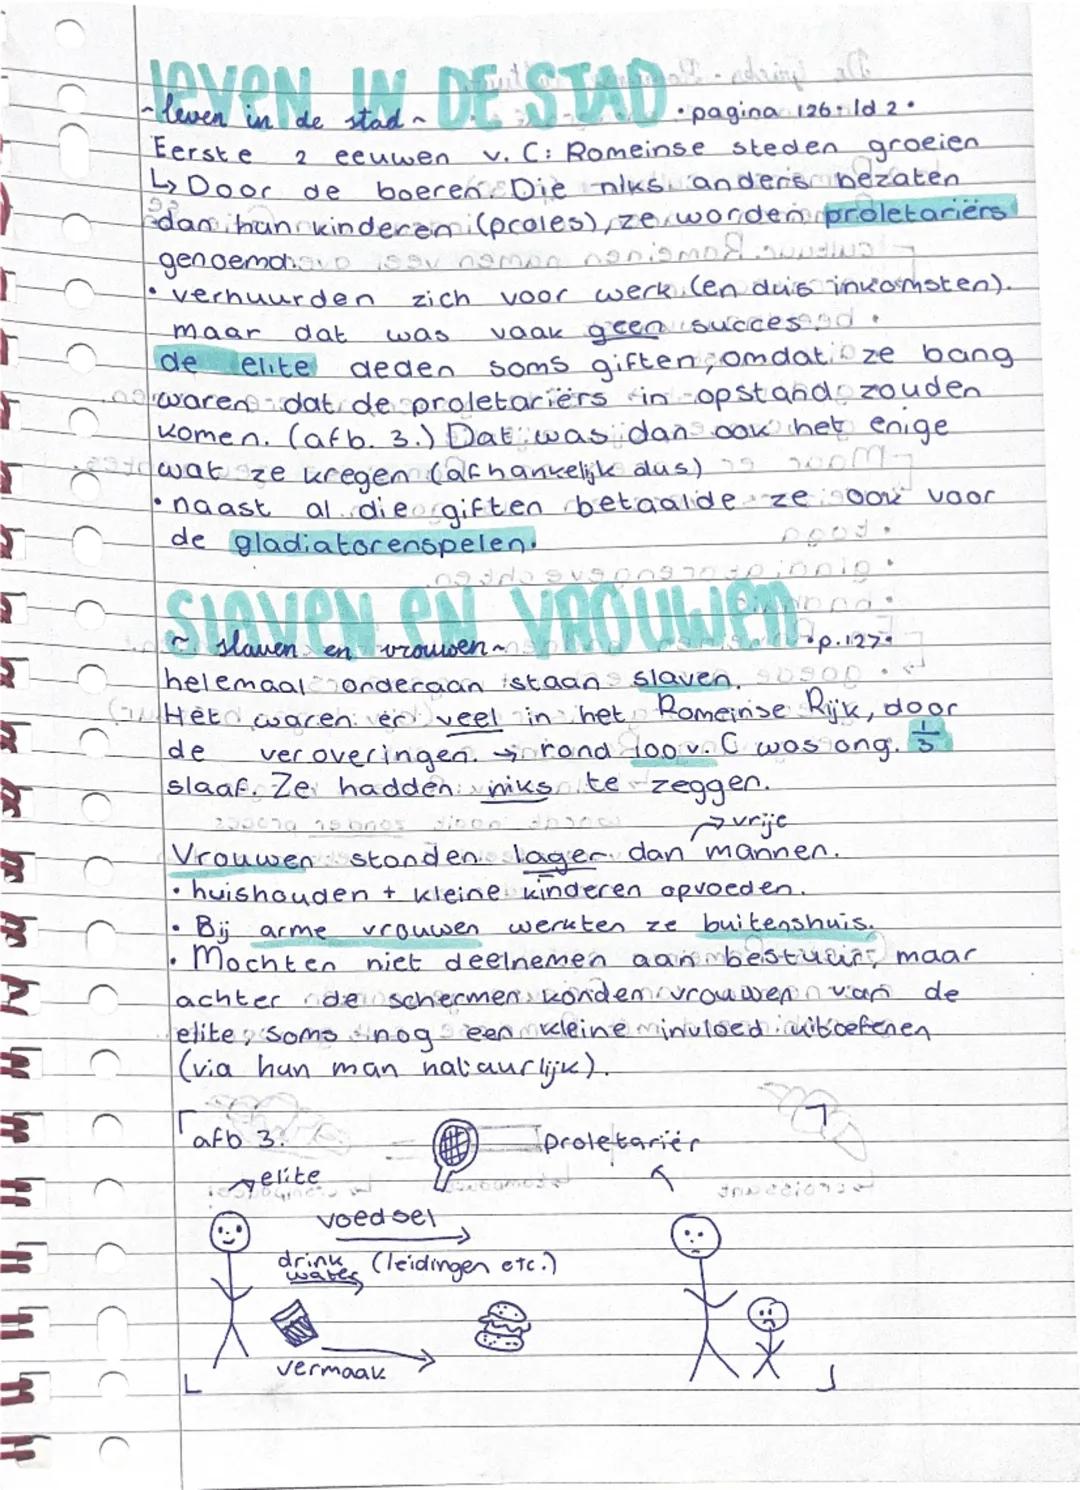 leven IN DE STAD
~leven in de stad~ •pagina 126• ld 2•
Eerste 2 eeuwen v. C: Romeinse steden groeien
↳ Door de boeren. Die niks anders bezaten
dan hun kinderen (proles), ze worden proletariërs
genoemd.
• verhuurden zich voor werk (en dus inkomsten).
maar dat was vaak geen succes.
de elite deden soms giften, omdat ze bang
waren dat de proletariërs in opstand zouden
komen. (afb. 3.) Dat was dan ook het enige
wat ze kregen (afhankelijk dus)
• naast al die giften betaalde ze ook voor
de gladiatorenspelen.
Slaven en vrouwen
~ slaven en vrouwen~ •p.127•
helemaal onderaan staan slaven.
Het waren er veel in het Romeinse Rijk, door
de veroveringen. → rond 100 v. C was ong. 1/3
slaaf. Ze hadden niks te zeggen.
→ vrije
Vrouwen stonden lager dan mannen.
• huishouden + kleine kinderen opvoeden.
• Bij arme vrouwen werkten ze buitenshuis.
• Mochten niet deelnemen aan bestuur, maar
achter de schermen konden vrouwen van de
elite, soms nog een kleine invloed uitoefenen
(via hun man natuurlijk).
afb 3. proletariër
elite
voedsel
drink water (leidingen etc.)
vermaak